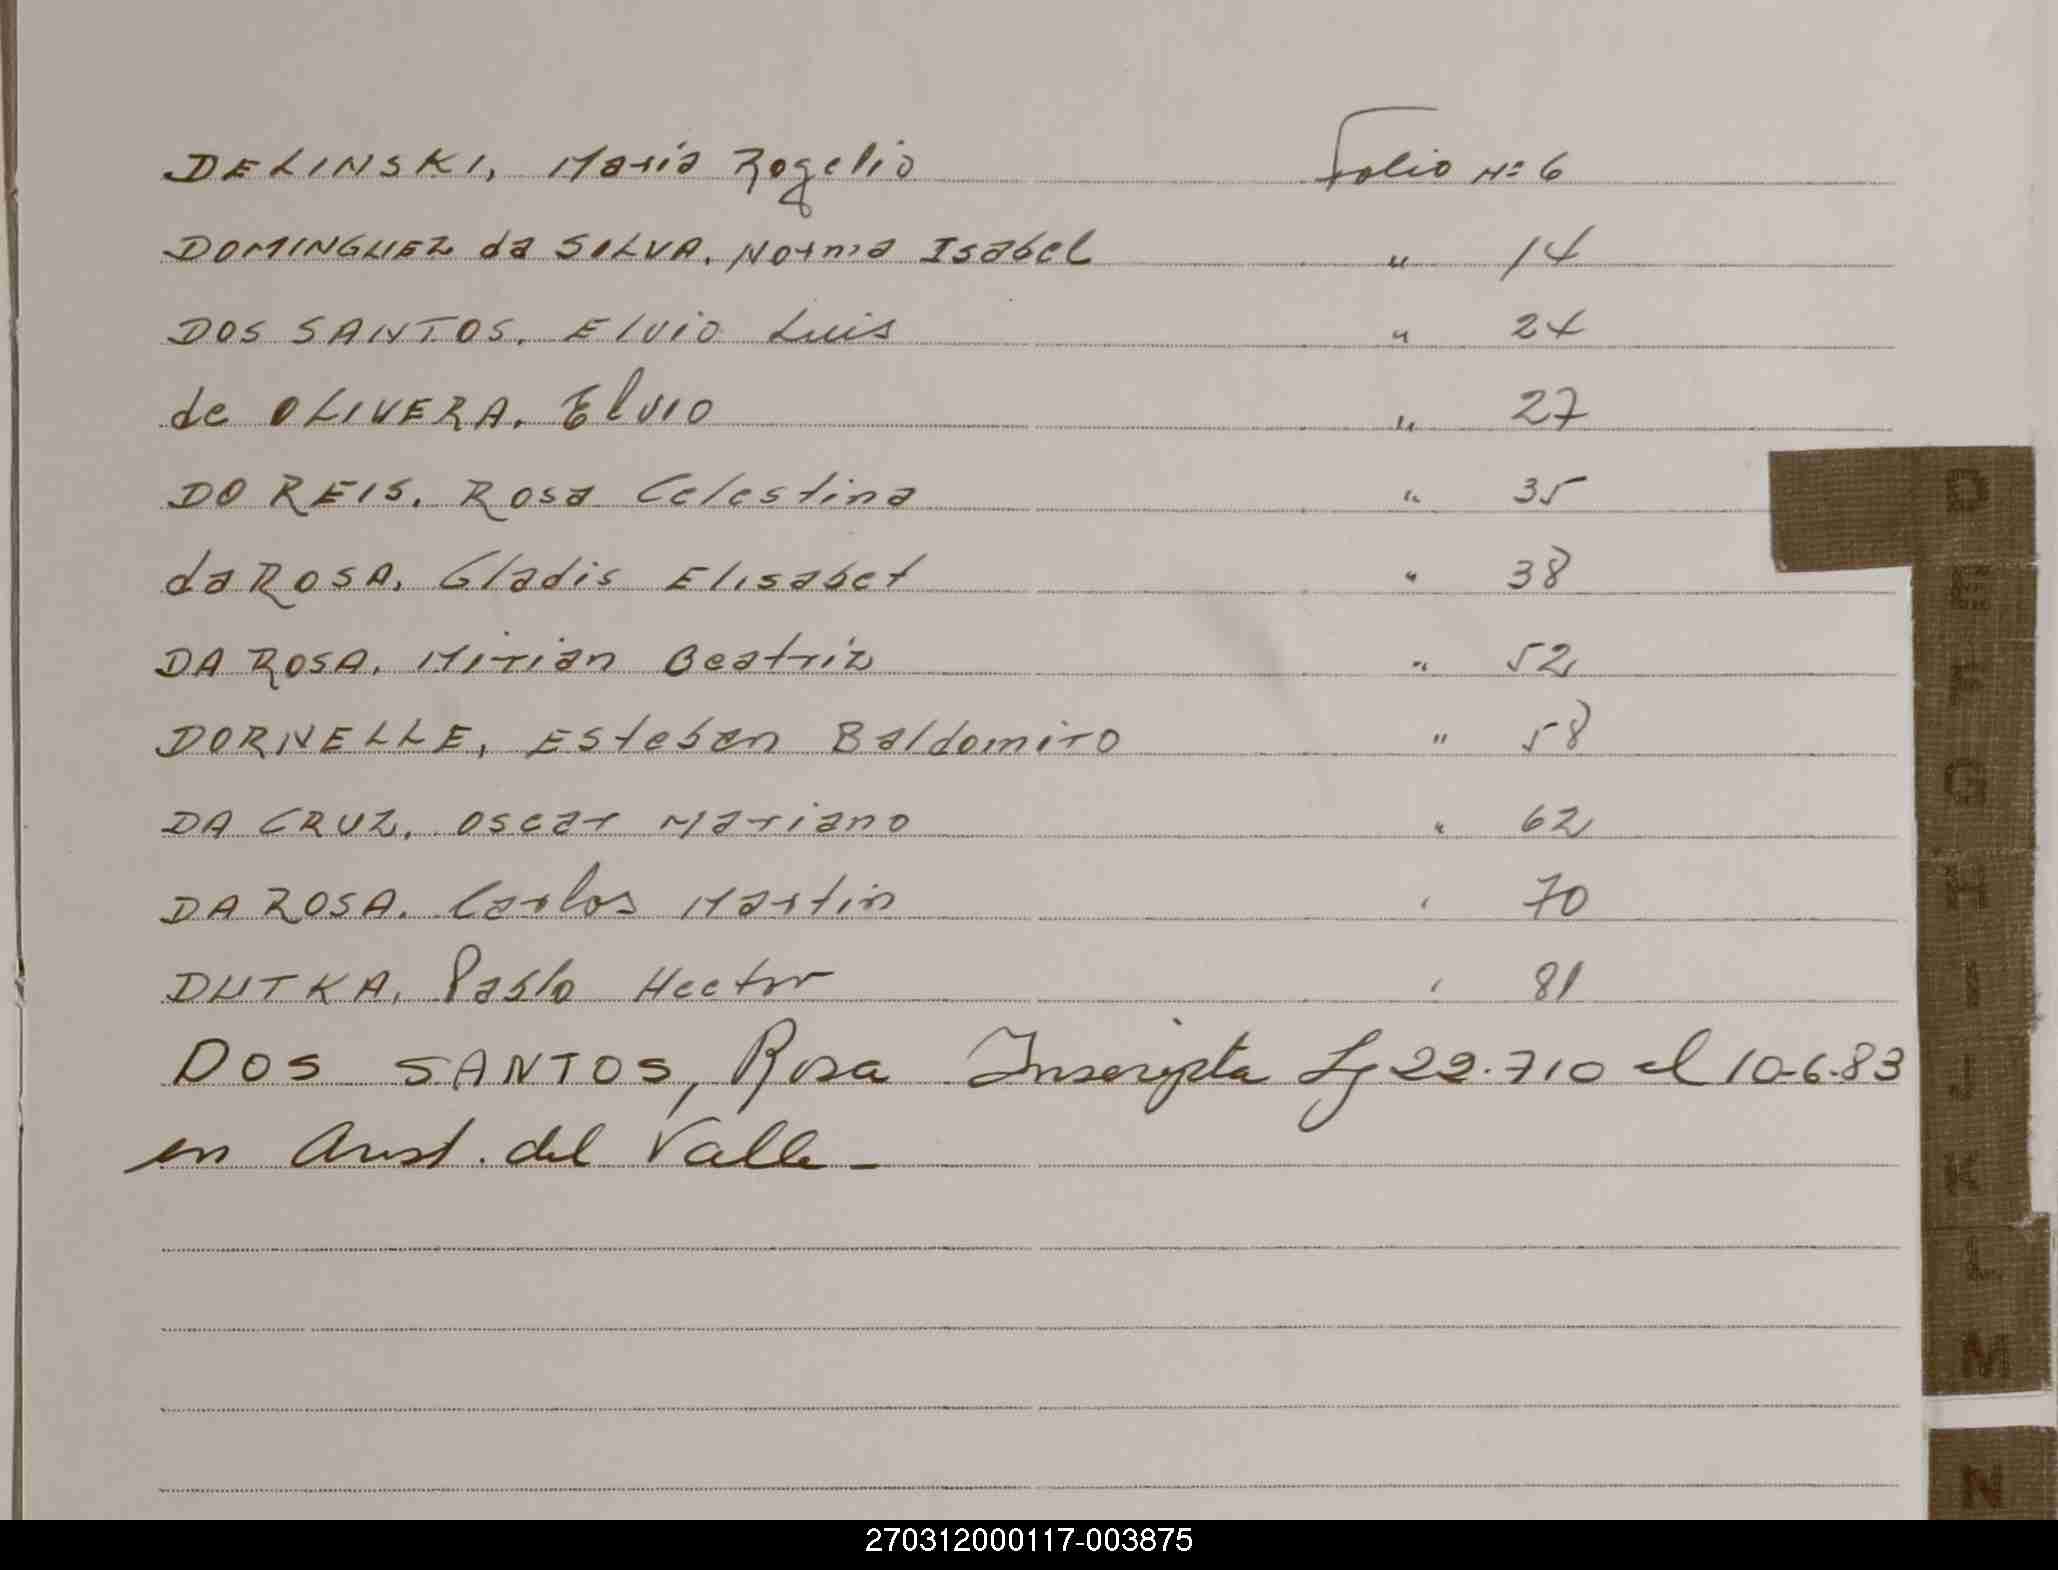 DELINSKI, Maria Rogelio Folio Nº 6
DOMINGUEZ da SILVA, Norma Isabel " 14
DOS SANTOS, Elvio Luis " 24
de OLIVERA, Elvio " 27
DO REIS, Rosa Celestina " 35
da ROSA, Gladis Elisabet " 38
DA ROSA, Mirian Beatriz " 52
DORNELLE, Esteban Baldomiro " 58
DA CRUZ, Oscar Mariano " 62
DA ROSA, Carlos Martin " 70
DUTKA, Pablo Hector " 81
DOS SANTOS, Rosa Inscripta 22.710 el 10-6-83
en Arist. del Valle -
D
E
F
G
H
I
J
K
L
M
N
270312000117-003875